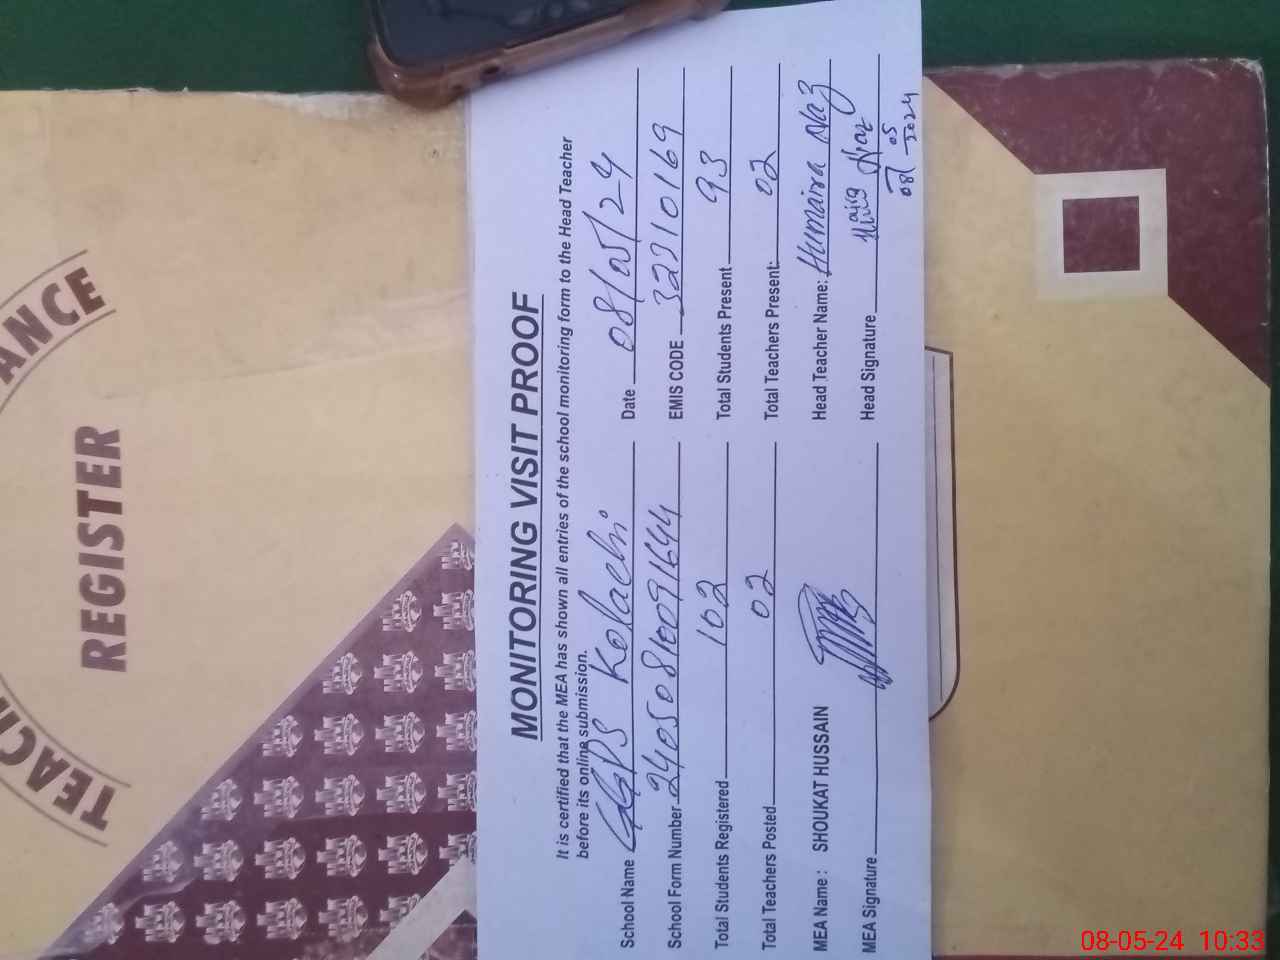 TEACH
ANCE
REGISTER
MONITORING VISIT PROOF
It is certified that the MEA has shown all entries of the school monitoring form to the Head Teacher
before its online submission.
School Name GGPS Kolachi Date 08/05/24
School Form Number EMIS CODE 32310169
Total Students Registered 102 Total Students Present 93
Total Teachers Posted 02 Total Teachers Present: 02
MEA Name : SHOUKAT HUSSAIN Head Teacher Name: Humaira Naz
MEA Signature Head Signature
08 05 2024
08-05-24 10:33